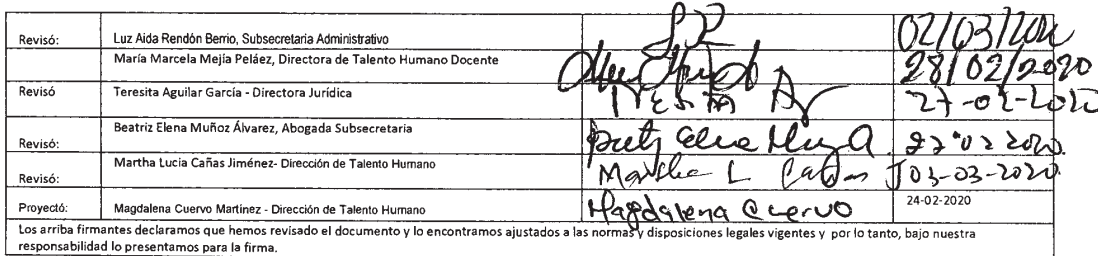 Revisó: Luz Aida Rendón Berrio, Subsecretaria Administrativo 02/03/2020
María Marcela Mejía Peláez, Directora de Talento Humano Docente 28/02/2020
Revisó Teresita Aguilar García - Directora Jurídica 27-02-2020
Revisó: Beatriz Elena Muñoz Álvarez, Abogada Subsecretaria 27-02 2020.
Revisó: Martha Lucia Cañas Jiménez- Dirección de Talento Humano Martha L Cañas J 03-03-2020.
Proyectó: Magdalena Cuervo Martínez - Dirección de Talento Humano Magdalena Cuervo 24-02-2020
Los arriba firmantes declaramos que hemos revisado el documento y lo encontramos ajustados a las normas y disposiciones legales vigentes y por lo tanto, bajo nuestra
responsabilidad lo presentamos para la firma.